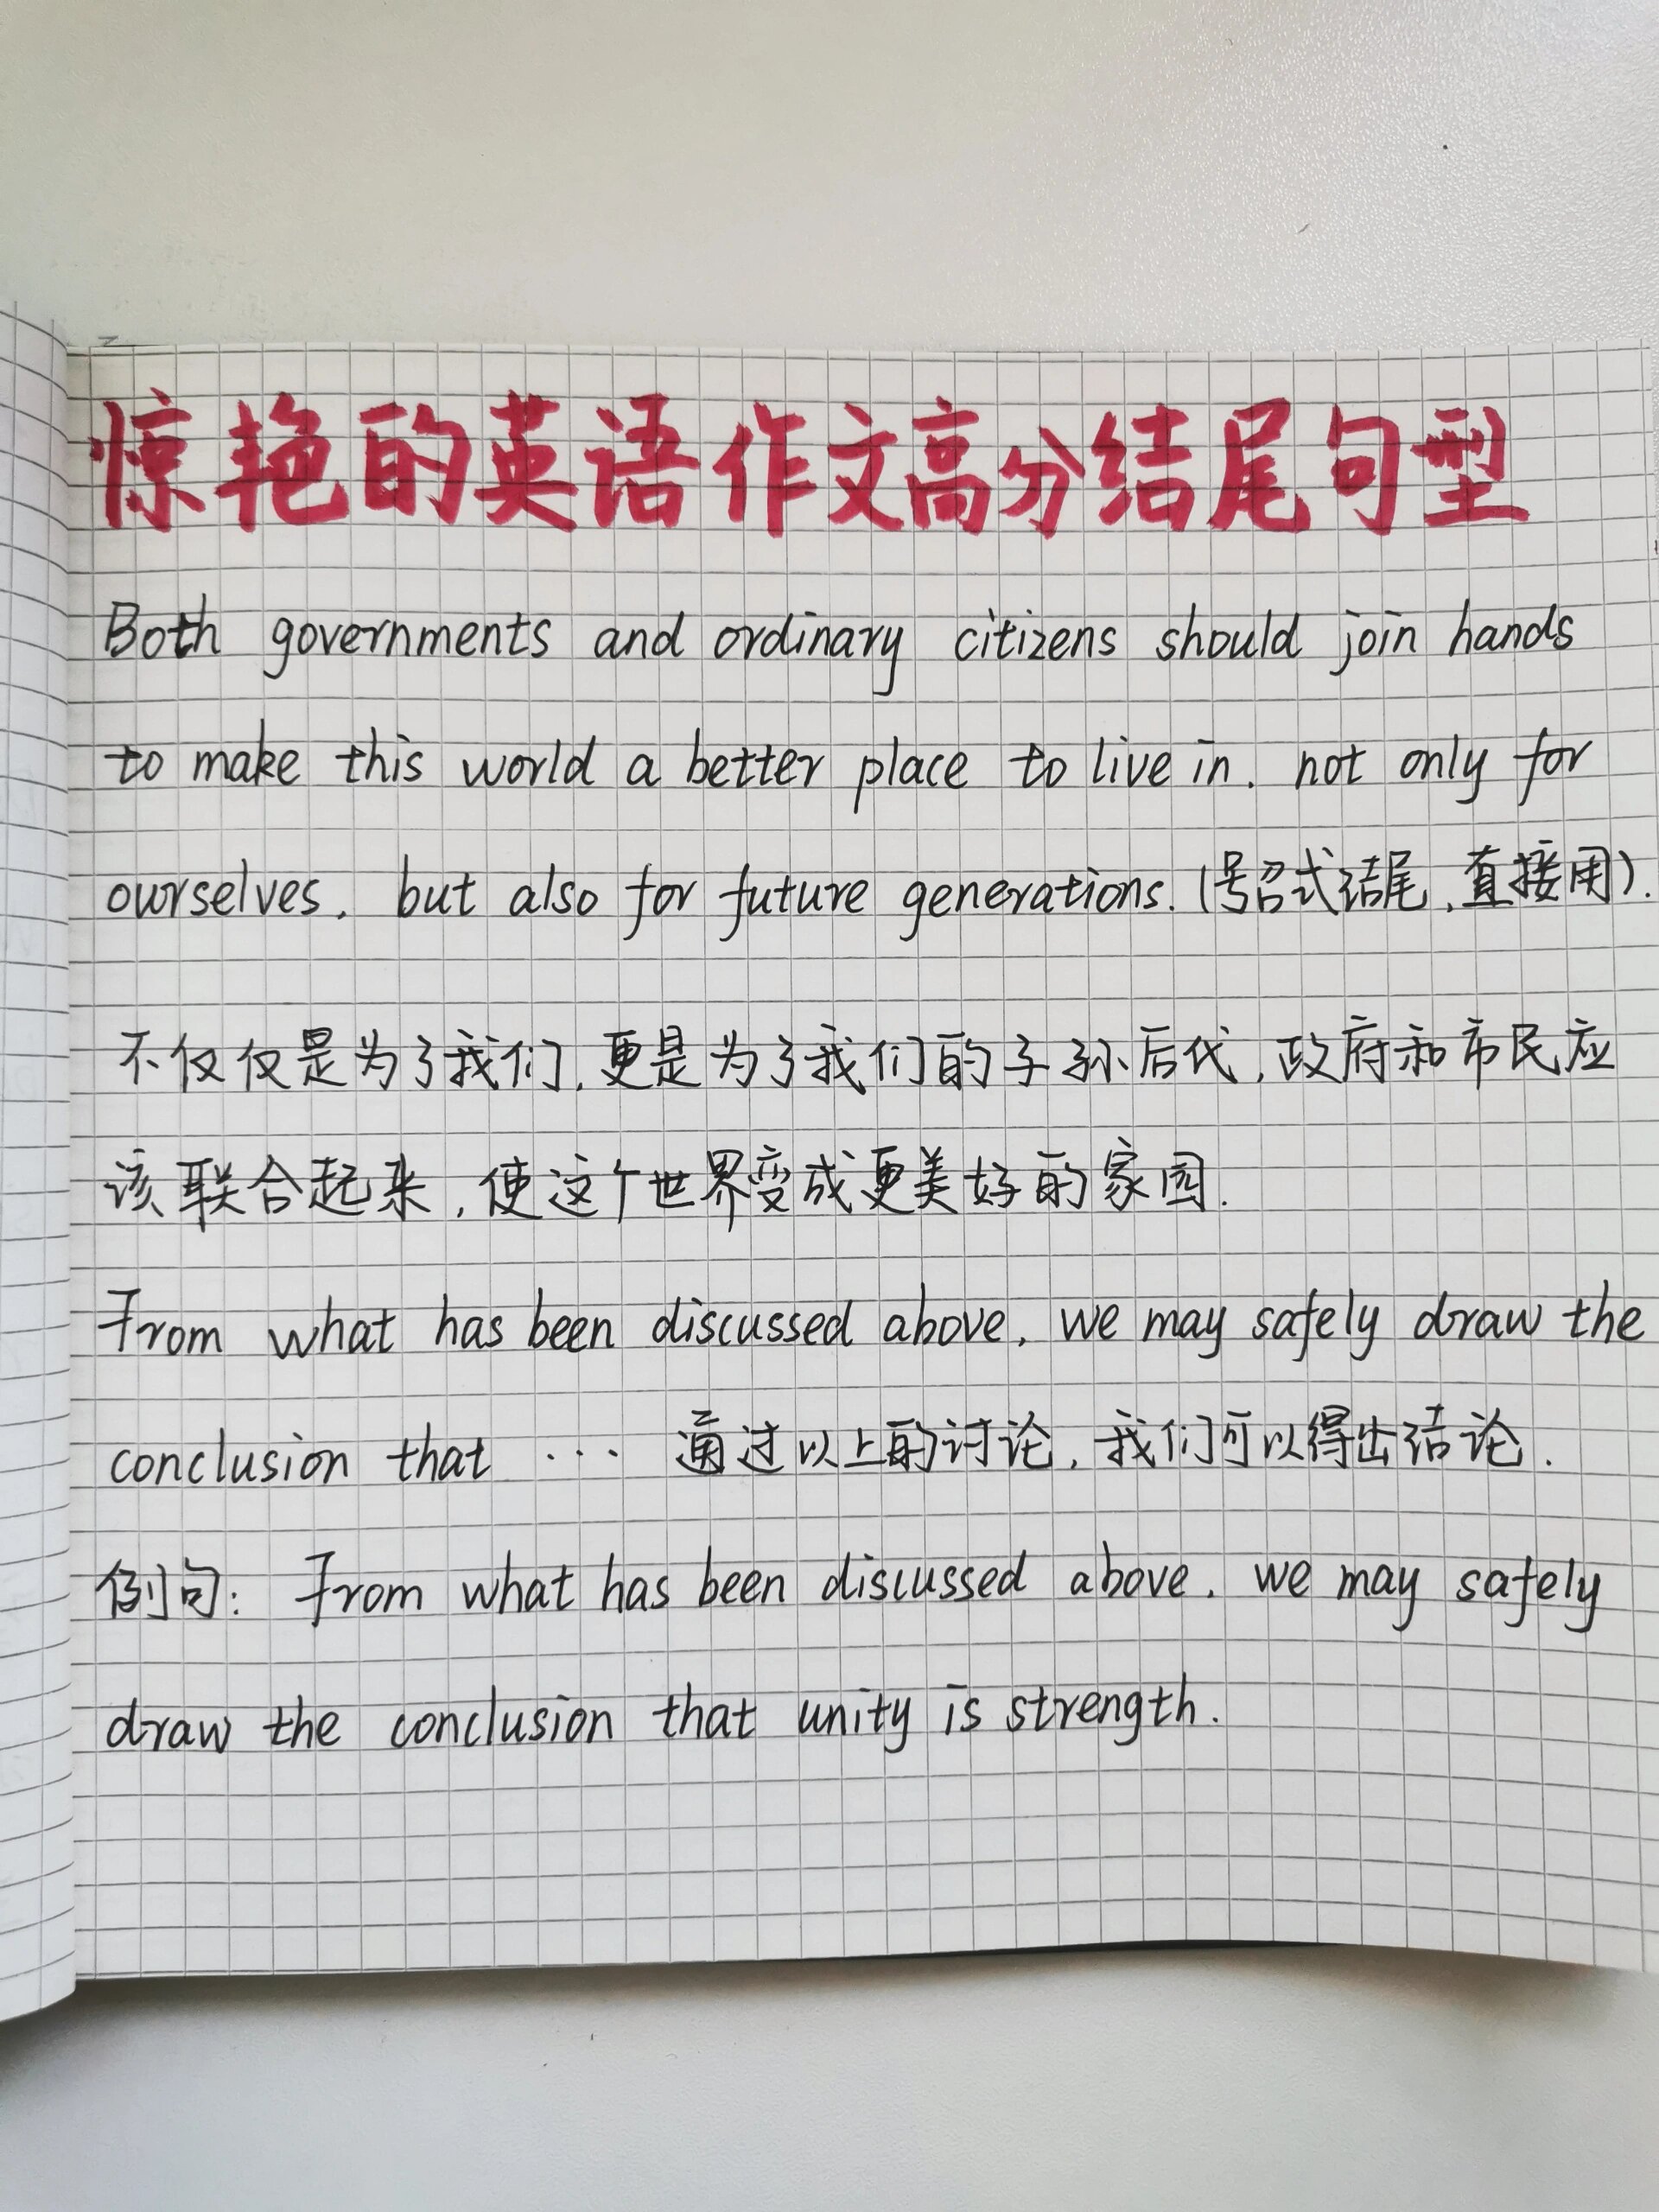 惊艳的英语作文高分结尾句型
Both governments and ordinary citizens should join hands
to make this world a better place to live in, not only for
ourselves, but also for future generations.(号召式结尾,直接用).
不仅仅是为了我们,更是为了我们的子孙后代,政府和市民应
该联合起来,使这个世界变成更美好的家园.
From what has been discussed above, we may safely draw the
conclusion that ... 通过以上的讨论,我们可以得出结论.
例句: From what has been discussed above, we may safely
draw the conclusion that unity is strength.